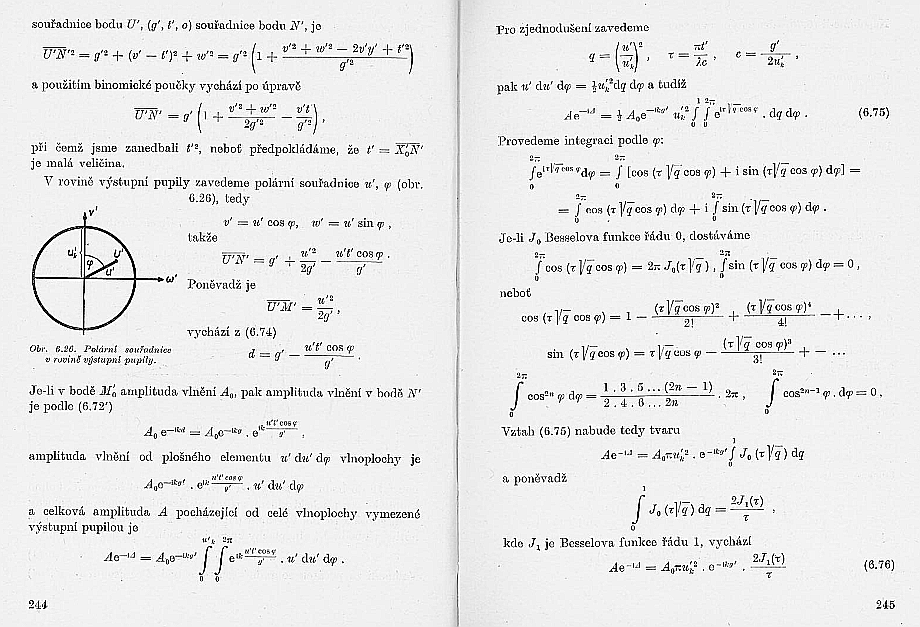 souřadnice bodu U', (g', t', o) souřadnice bodu N', je
U'N'² = g'² + (v' − t')² + w'² = g'² (1 + (v'² + w'² − 2v'y' + t'²)/g'²)
a použitím binomické poučky vychází po úpravě
U'N' = g' (1 + (v'² + w'²)/2g'² − v't'/g'²) ,
při čemž jsme zanedbali t'², neboť předpokládáme, že t' = X₀'N'
je malá veličina.
V rovině výstupní pupily zavedeme polární souřadnice u', φ (obr.
6.26), tedy
v' = u' cos φ, w' = u' sin φ ,
takže
U'N' = g' + u'²/2g' − u't' cos φ/g' .
Poněvadž je
U'M' = u'²/2g' ,
vychází z (6.74)
d = g' − u't' cos φ/g' .
v'
u'ₖ
φ
U'
u'
ω'
Obr. 6.26. Polární souřadnice
v rovině výstupní pupily.
Je-li v bodě M₀' amplituda vlnění A₀, pak amplituda vlnění v bodě N'
je podle (6.72')
A₀ e^(−ikd) = A₀e^(−ikg') . e^(ik u't' cos φ/g') ,
amplituda vlnění od plošného elementu u' du' dφ vlnoplochy je
A₀e^(−ikg') . e^(ik u't' cos φ/g') . u' du' dφ
a celková amplituda A pocházející od celé vlnoplochy vymezené
výstupní pupilou je
Ae^(−iΔ) = A₀e^(−ikg') ∫₀^(u'ₖ) ∫₀^(2π) e^(ik u't' cos φ/g') . u' du' dφ .
244
Pro zjednodušení zavedeme
q = (u'/u'ₖ)² , τ = πt'/λc , c = g'/2u'ₖ ,
pak u' du' dφ = ½u'ₖ²dq dφ a tudíž
Ae^(−iΔ) = ½ A₀e^(−ikg') u'ₖ² ∫₀¹ ∫₀^(2π) e^(iτ√q cos φ) . dq dφ . (6.75)
Provedeme integraci podle φ:
∫₀^(2π) e^(iτ√q cos φ) dφ = ∫₀^(2π) [cos (τ √q cos φ) + i sin (τ√q cos φ) dφ] =
= ∫₀^(2π) cos (τ √q cos φ) dφ + i ∫₀^(2π) sin (τ √q cos φ) dφ .
Je-li J₀ Besselova funkce řádu 0, dostáváme
∫₀^(2π) cos (τ √q cos φ) = 2π J₀(τ √q) , ∫₀^(2π) sin (τ √q cos φ) dφ = 0 ,
neboť
cos (τ √q cos φ) = 1 − (τ √q cos φ)²/2! + (τ √q cos φ)⁴/4! − + . . . ,
sin (τ √q cos φ) = τ √q cos φ − (τ √q cos φ)³/3! + − ...
∫₀^(2π) cos²ⁿ φ dφ = 1 . 3 . 5 ... (2n − 1)/2 . 4 . 6 ... 2n . 2π , ∫₀^(2π) cos²ⁿ⁻¹ φ . dφ = 0 ,
Vztah (6.75) nabude tedy tvaru
Ae^(−iΔ) = A₀πu'ₖ² . e^(−ikg') ∫₀¹ J₀ (τ √q) dq
a poněvadž
∫₀¹ J₀ (τ√q) dq = 2J₁(τ)/τ ,
kde J₁ je Besselova funkce řádu 1, vychází
Ae^(−iΔ) = A₀πu'ₖ² . e^(−ikg') . 2J₁(τ)/τ (6.76)
245